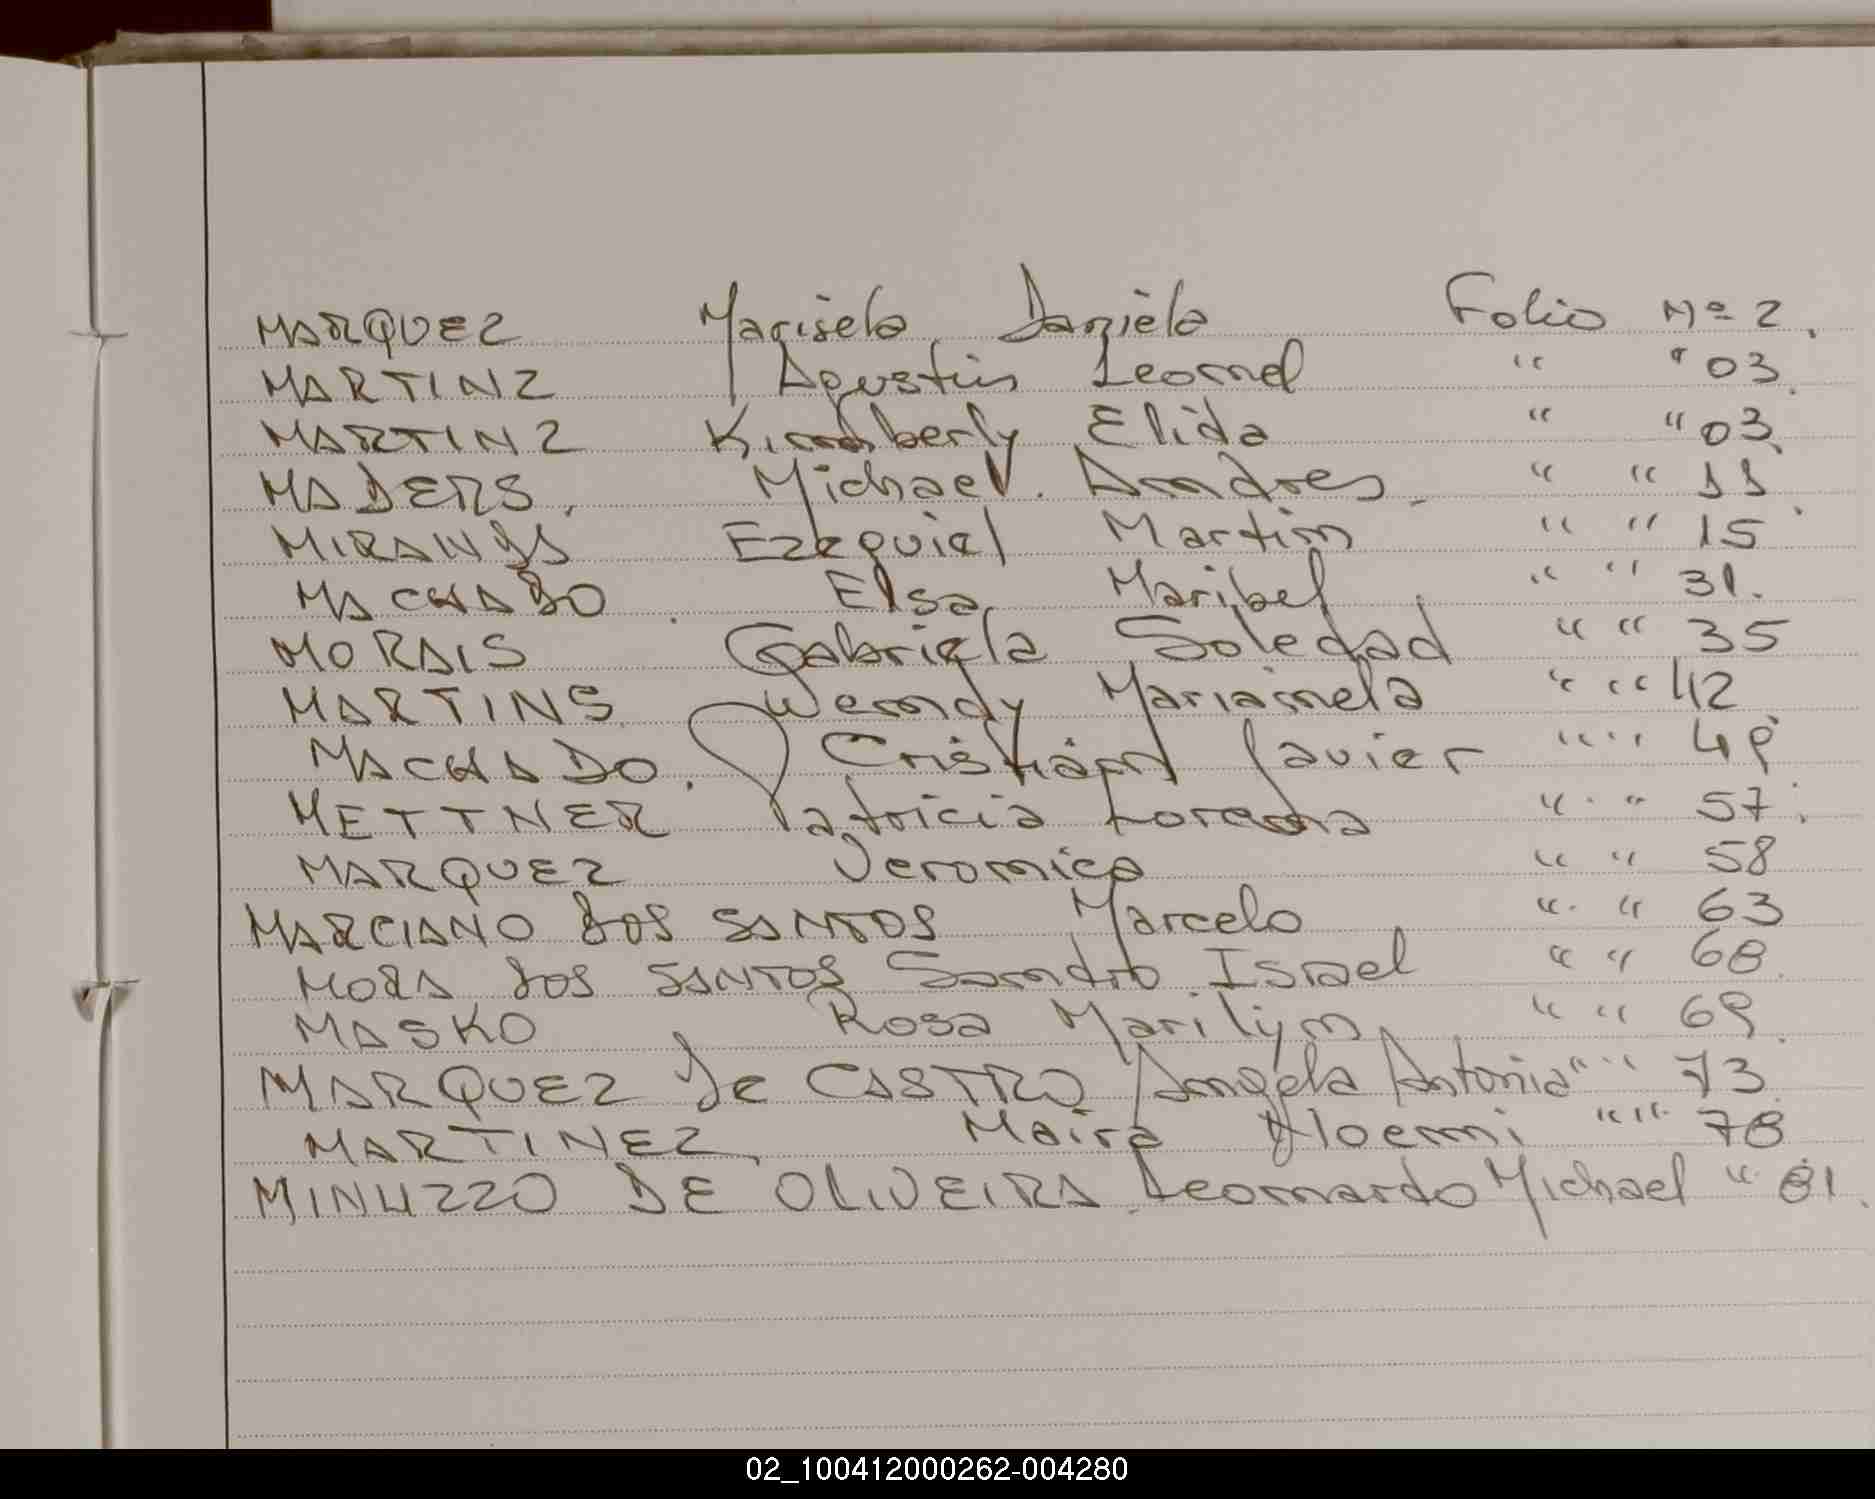 MARQUEZ Marisela Daniela Folio Nº 2.
MARTINZ Agustin Leonel " " 03.
MARTINZ Kimberly Elida " " 03.
MADERS, Michael Andres. " " 11.
MIRANDA Ezequiel Martin " " 15
MACHADO. Elsa Maribel " " 31.
MORAIS Gabriela Soledad " " 35
MARTINS Wendy Marianela " " 42
MACHADO. Cristian Javier " " 49.
METTNER Patricia Lorena " " 57.
MARQUEZ Veronica " " 58
MARCIANO DOS SANTOS Marcelo " " 63
MORA DOS SANTOS Sandro Israel " " 68.
MASKO Rosa Marilyn " " 69.
MARQUEZ de CASTRO Angela Antonia " " 73.
MARTINEZ. Maira Noemi " " 78
MINUZZO DE OLIVEIRA Leonardo Michael " 81.
02_100412000262-004280